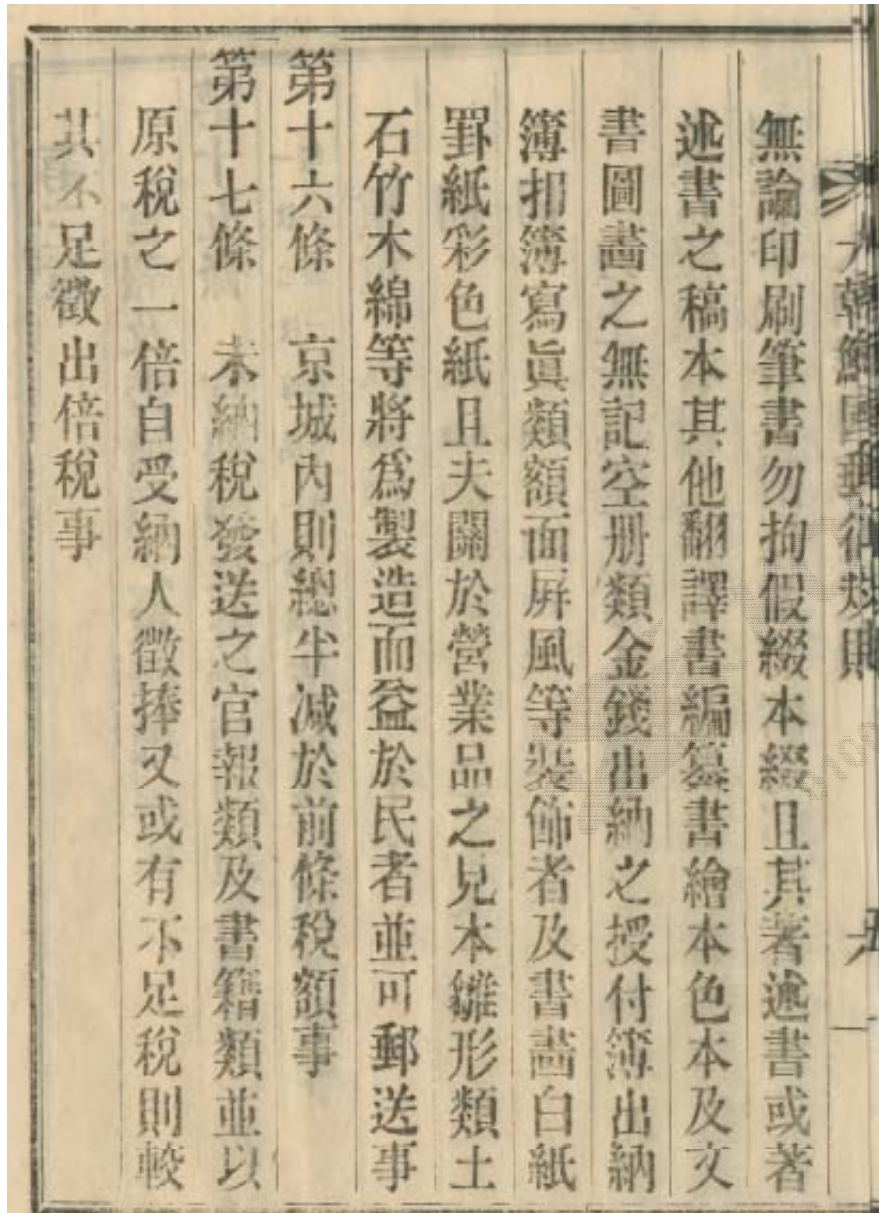 大朝鮮國郵征規則
無論印刷筆書勿拘假綴本綴且其著述書或著
述書之稿本其他翻譯書編纂書繪本色本及文
書圖畵之無記空册類金錢出納之授付簿出納
簿扣簿寫眞類額面屛風等裝飾者及書畵白紙
罫紙彩色紙且夫關於營業品之見本雛形類土
石竹木綿等將爲製造而益於民者並可郵送事
第十六條　京城內則總半減於前條稅額事
第十七條　未納稅發送之官報類及書籍類並以
原稅之一倍自受納人徵捧又或有不足稅則較
其不足徵出倍稅事